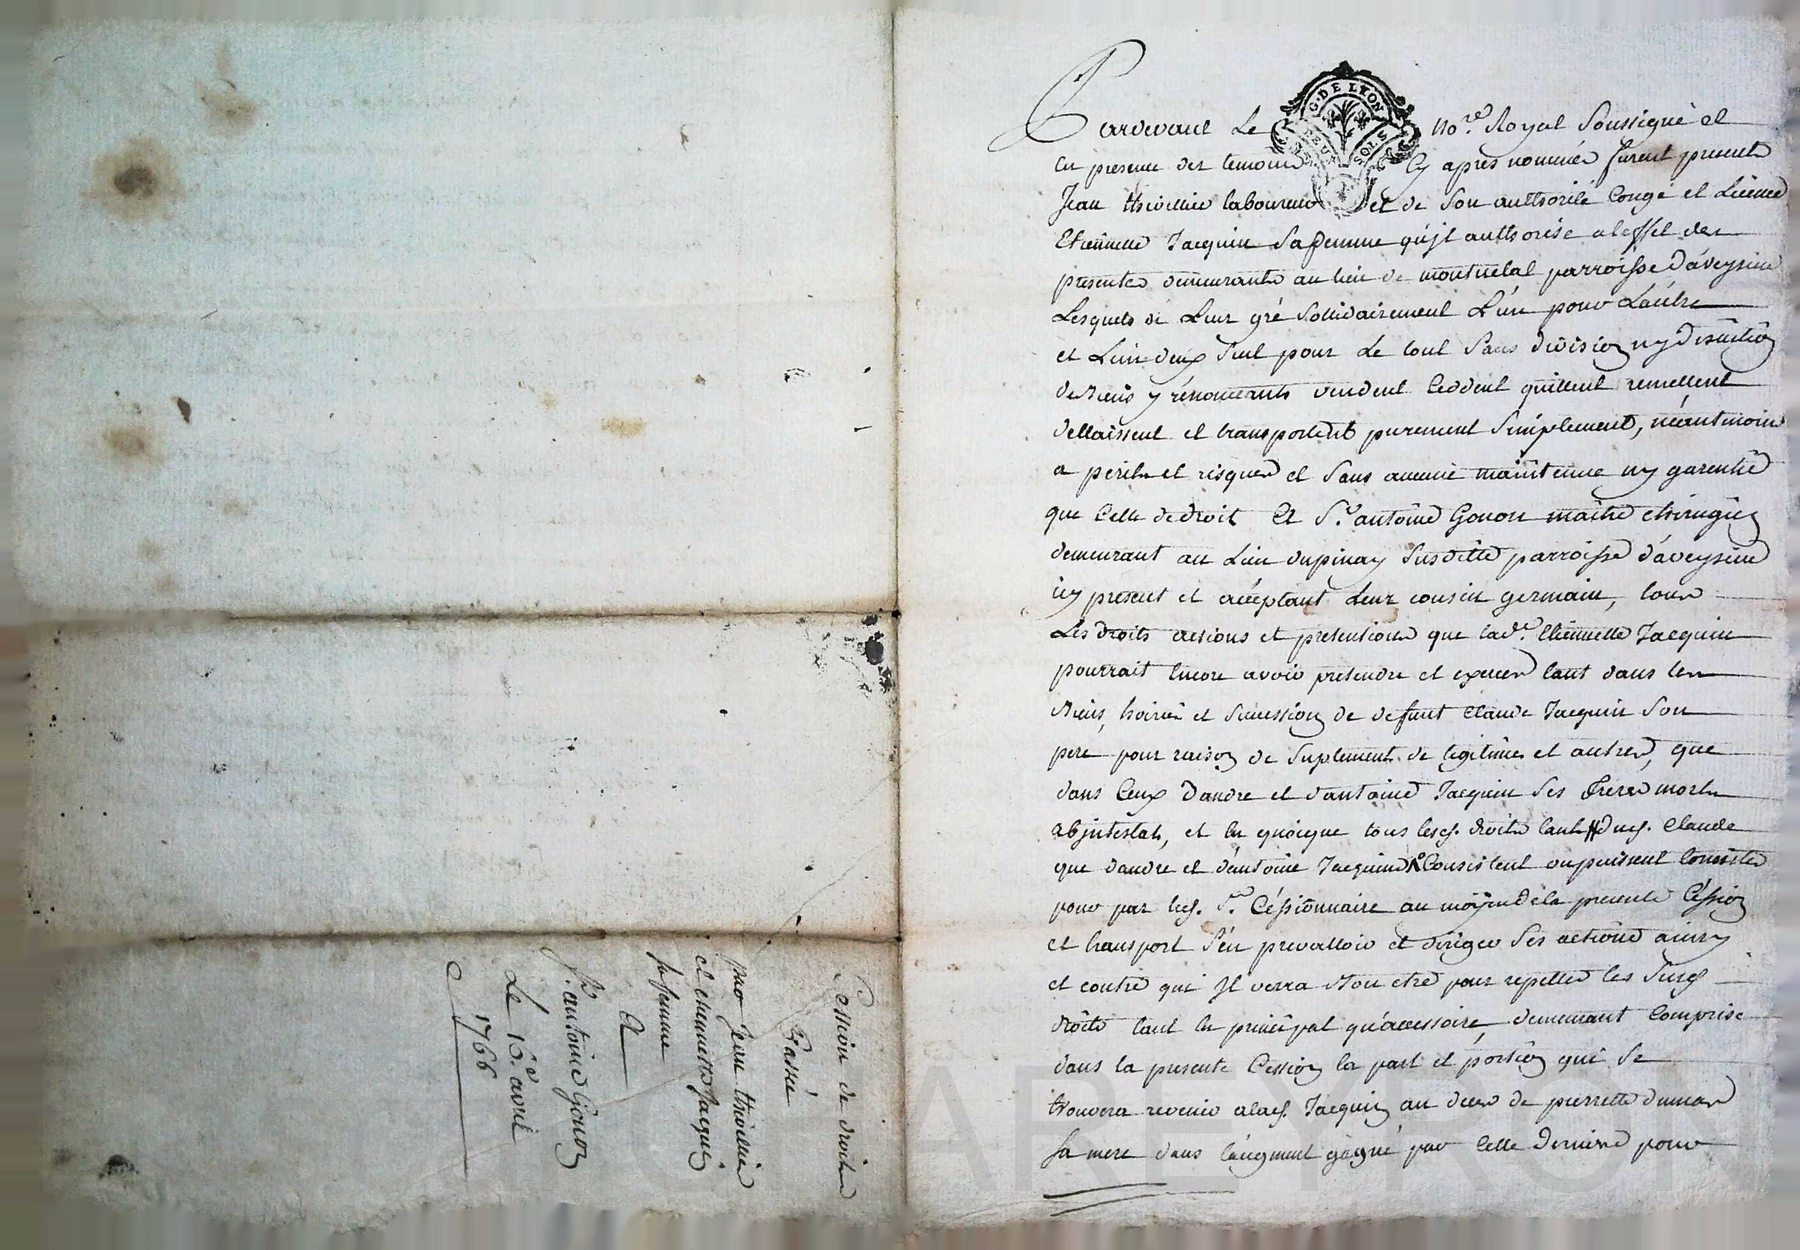 Pardevant Le no.re Royal Soussigné et
En presence des temoins Cy apres nommés furent presents
Jean thivellier laboureur et de Son authorité Congé et Licence
Etiennette Jacquin Sa femme qu'jl authorise a leffet des
presentes demeurants au lieu de montuclat parroisse d'aveysieu
Lesquels de Leur gré Sollidairement L'un pour Lautre
et L'un deux Seul pour Le tout Sans division ny discution
de Biens y renonceants vendent Ceddent quittent remettent
dellaissent et transportent purement Simplement, néantmoins
a perils et risques et Sans aucune maintenue ny garentie
que Celle de droit A S.r antoine Gonon maitre chirugien
demeurant au Lieu dupinay Susditte parroisse d'aveysieu
icy present et acceptant Leur cousin germain, tous
Les droits actions et pretentions que lad.e Etiennette Jacquin
pourrait Encore avoir pretendre et exercer tant dans les
Biens, hoirie et Sucession de deffunt Claude Jacquin Son
pere pour raison de Suplement de legitime et autres, que
dans Ceux D'andre et d'antoine Jacquin Ses freres morts
abjntestats, et En quoique tous lesd. droits tant dud. Claude
que dandre et d'antoine Jacquin Consistent ou puissent Consister
pour par led. S.r Céssionnaire au moÿen de la presente Céssion
et transport S'en prevalloir et diriger Ses actions ainsy
et contre qui Jl verra Bon etre pour repetter les Susd.
droits tant En principal qu'accessoire, demeurant Comprise
dans la presente Cession la part et portion qui Se
trouvera revenir a lad. Jacquin au deces de pierrette dumas
Sa mere dans l'augment gagné par Cette derniere pour
Cession de droits
Passée
par Jean thivellier
et etiennette Jacquin
sa femme
A
S.r antoine Gonon
Le 16.e avril
1766
G. DE LYON
SOLS
CHAREYRON